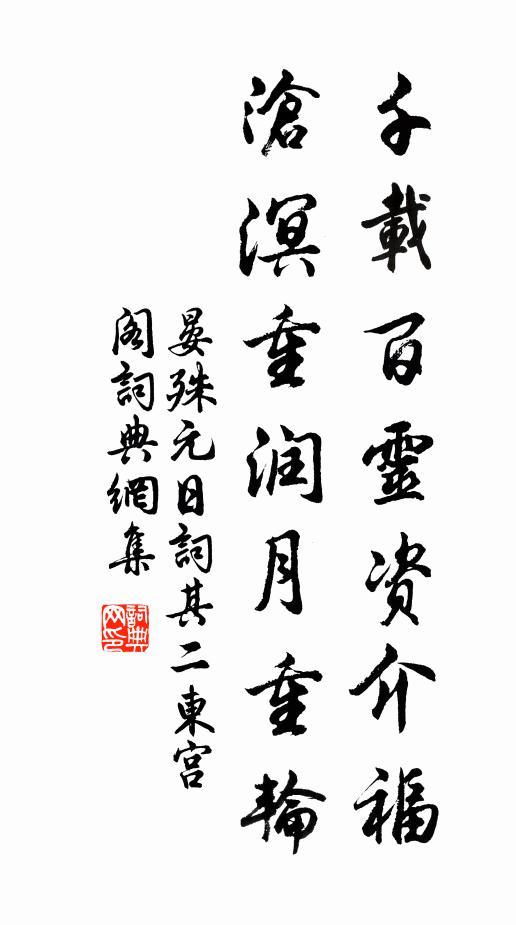 千載百靈資介福
滄溟重润月重輪
晏殊元日詞其二東宫
阁詞典網集
詞典
网印